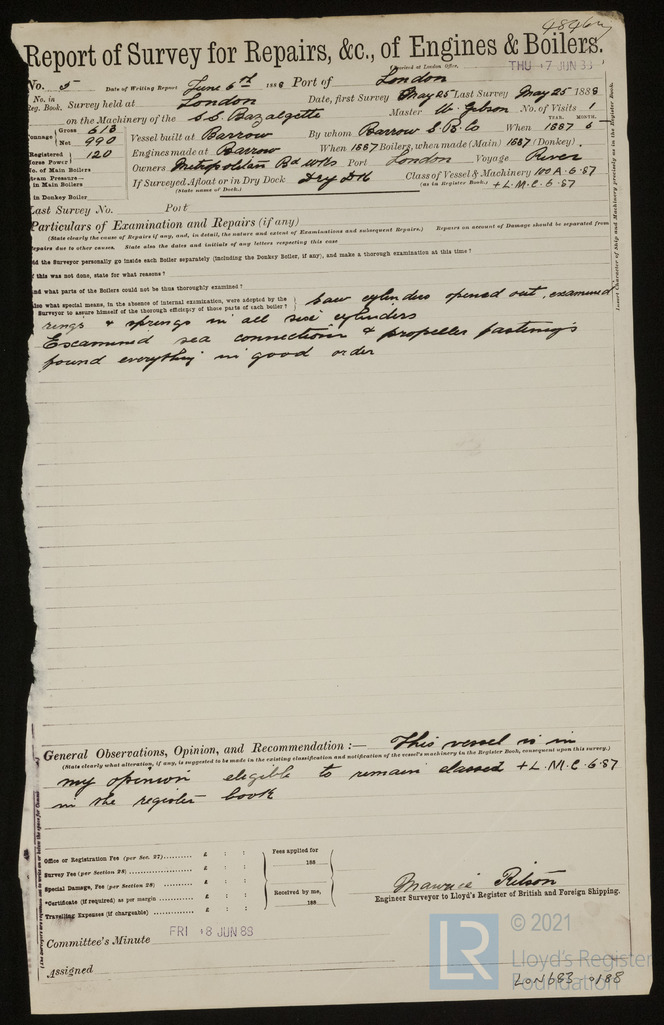 48464
Report of Survey for Repairs, &c., of Engines & Boilers.
Received at London Office, THU 7 JUN 88
No. 5 Date of Writing Report June 6th 1888 Port of London
No. in Reg. Book. Survey held at London Date, first Survey May 25 Last Survey May 25 1888
on the Machinery of the S.S. Bazalgette Master W. Gibson No. of Visits 1
Tonnage Gross 613
Net 990
Vessel built at Barrow By whom Barrow S. B. Co When 1887 6
YEAR. MONTH.
Registered Horse Power 120 Engines made at Barrow When 1887 Boilers, when made (Main) 1887 (Donkey)
No. of Main Boilers Owners Metropolitan Bd Wks Port London Voyage River
Steam Pressure in Main Boilers If Surveyed Afloat or in Dry Dock Dry Dk Class of Vessel & Machinery 100 A. 6.87
(State name of Dock.) (as in Register Book.) + L.M.C. 6.87
in Donkey Boiler
Last Survey No. Port
Particulars of Examination and Repairs (if any)
(State clearly the cause of Repairs if any, and, in detail, the nature and extent of Examinations and subsequent Repairs.) Repairs on account of Damage should be separated from
Repairs due to other causes. State also the dates and initials of any letters respecting this case
Did the Surveyor personally go inside each Boiler separately (including the Donkey Boiler, if any), and make a thorough examination at this time?
If this was not done, state for what reasons?
And what parts of the Boilers could not be thus thoroughly examined?
Also what special means, in the absence of internal examination, were adopted by the
Surveyor to assure himself of the thorough efficiency of those parts of each boiler?
Saw cylinders opened out, examined
rings & springs in all six cylinders
Examined sea connections & propeller fastenings
found everything in good order
Insert Character of Ship and Machinery precisely as in the Register Book.
General Observations, Opinion, and Recommendation :— This vessel is in
(State clearly what alteration, if any, is suggested to be made in the existing classification and notification of the vessel's machinery in the Register Book, consequent upon this survey.)
my openion eligible to remain classed + L.M.C. 6.87
in the register book
Office or Registration Fee (per Sec. 27) £ : :
Survey Fee (per Section 28) £ : :
Special Damage, Fee (per Section 28) £ : :
*Certificate (if required) as per margin £ : :
Travelling Expenses (if chargeable) £ : :
Fees applied for
188
Received by me,
188
Engineer Surveyor to Lloyd's Register of British and Foreign Shipping.
Committee's Minute FRI 8 JUN 88
Assigned
LR © 2021
Lloyd's Register
Foundation
LON683-0188